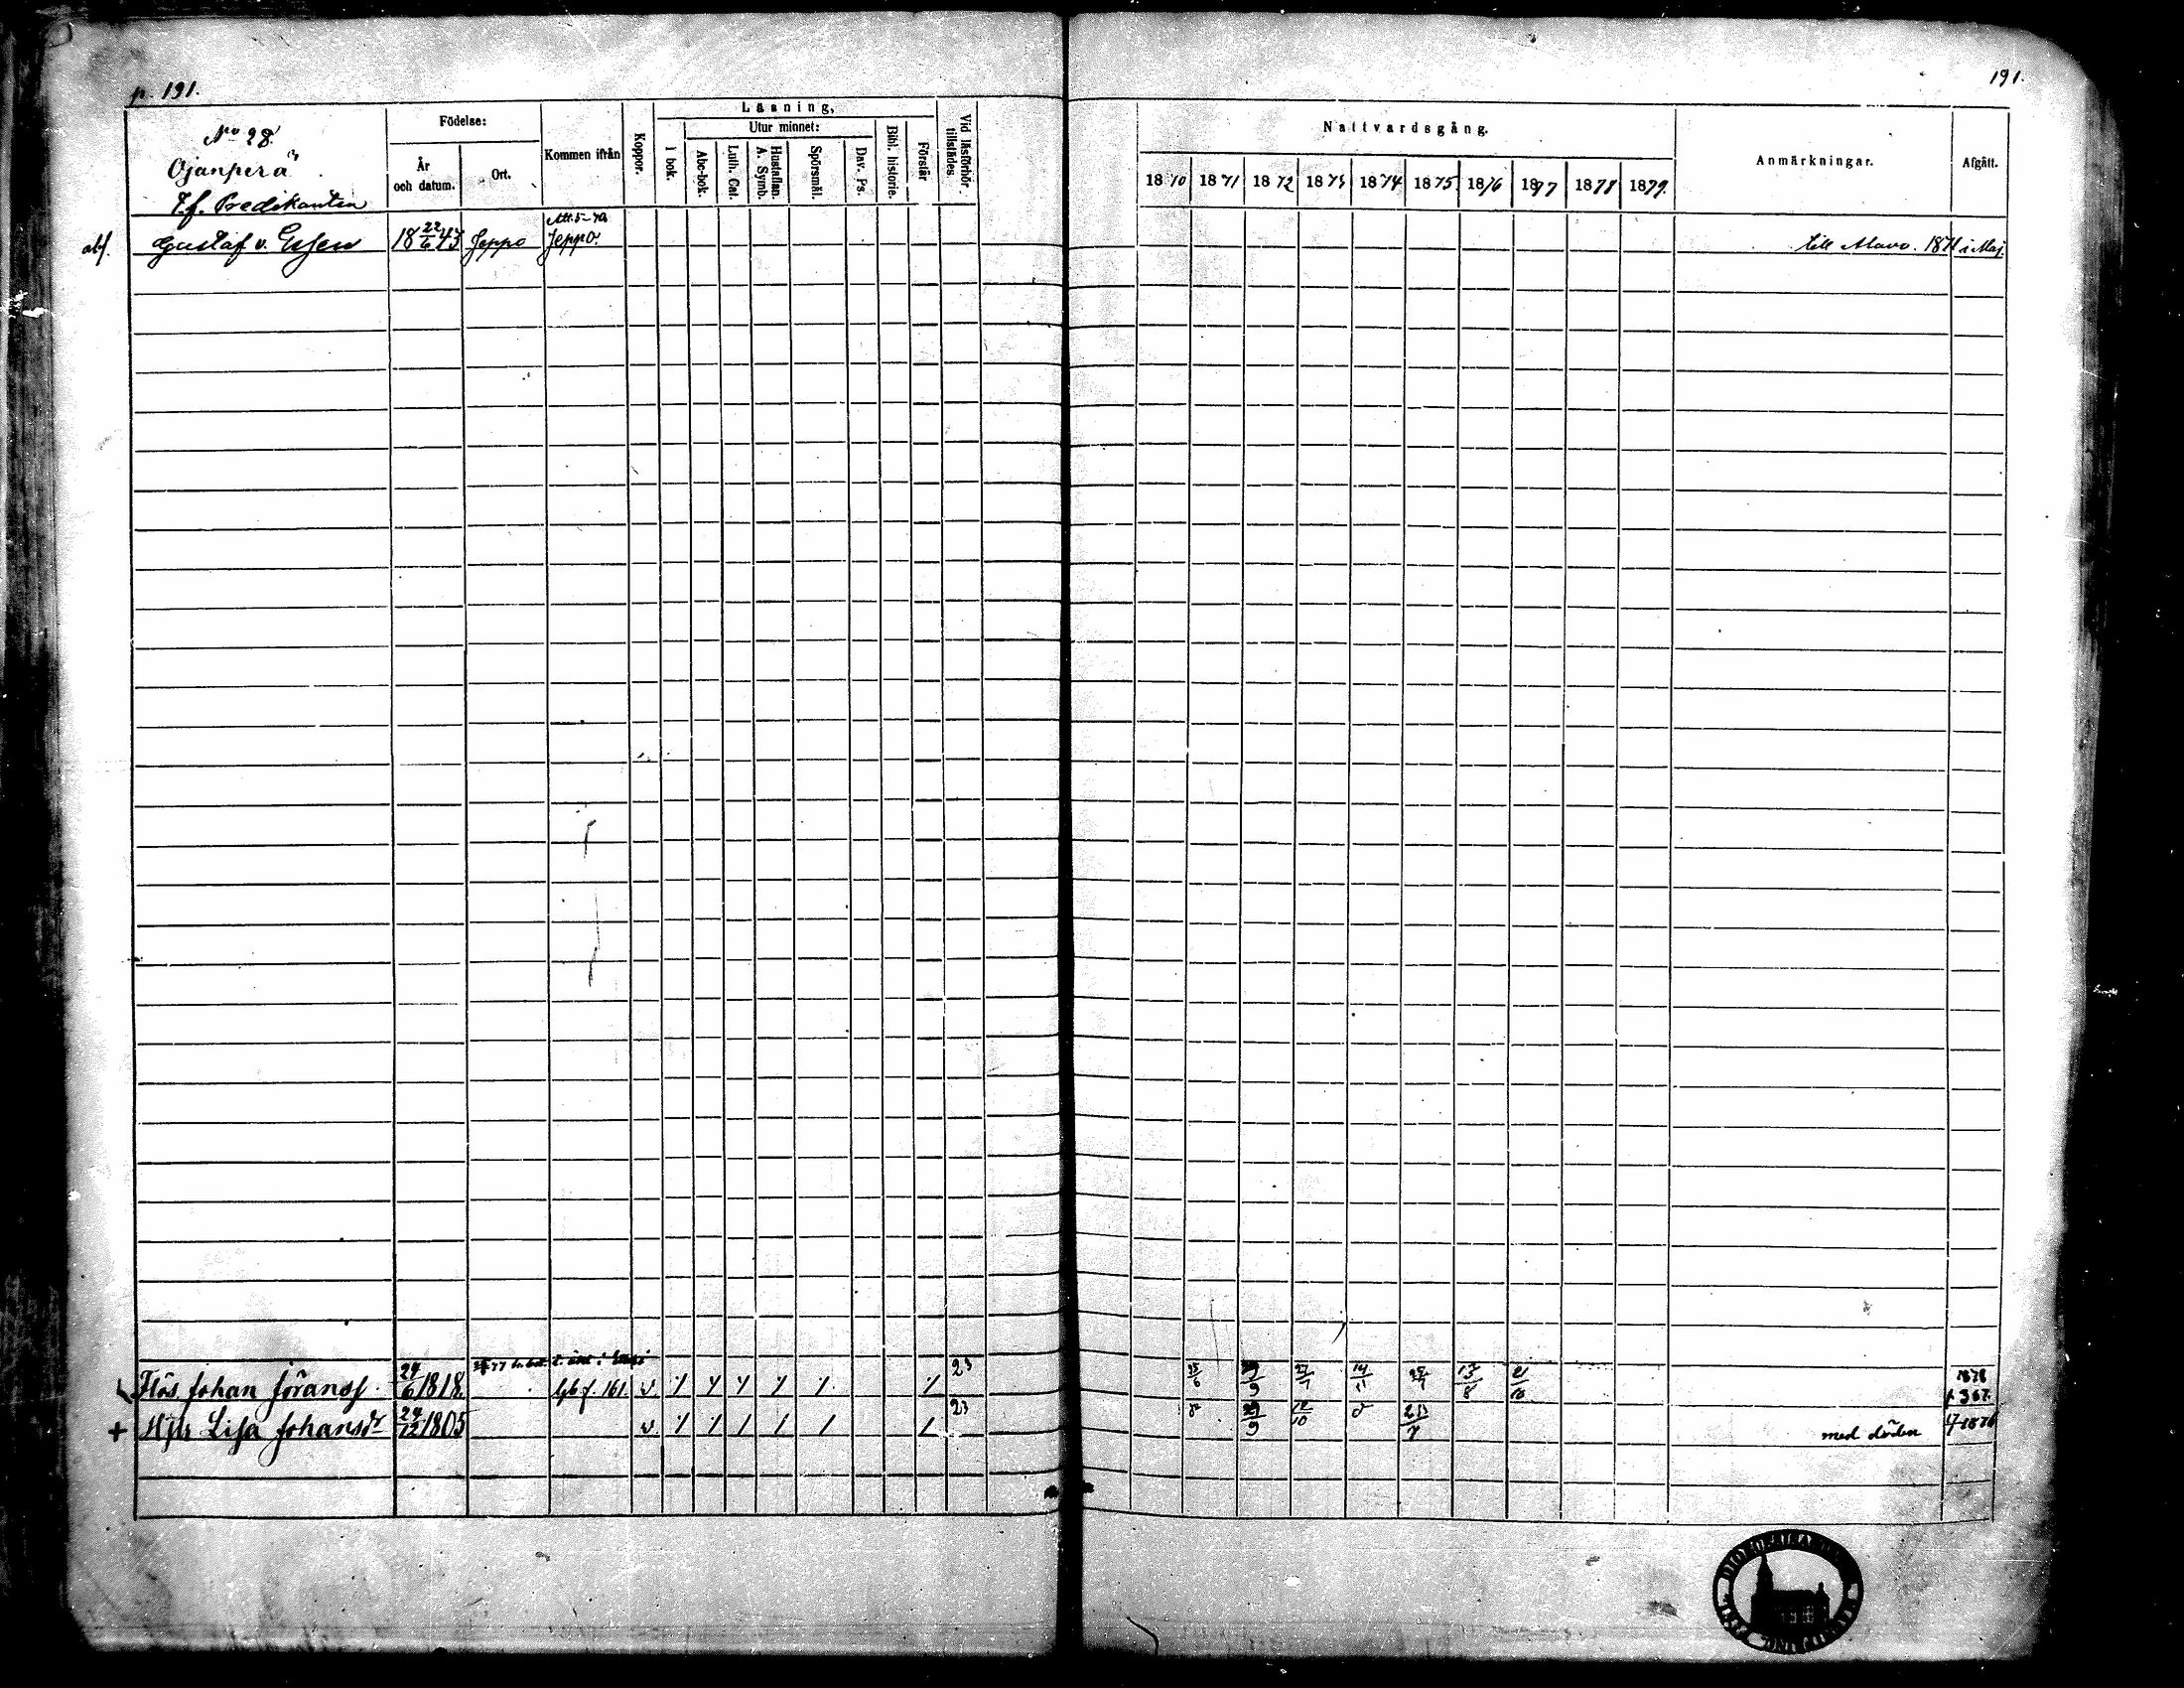 p. 191.
191.
No 28.
Ojanperä
T.f. Predikanten
Födelse:
År
och datum.
Ort.
Kommen ifrån
Koppor.
Läsning,
I bok.
Utur minnet:
Abc-bok.
Luth. Cat.
Hustaflan.
A. Symb.
Spörsmål.
Dav. Ps.
Bibl. historie.
Förstår
Vid läsförhör
tillstädes.
Nattvardsgång.
1870 1871 1872 1873 1874 1875 1876 1877 1878 1879.
Anmärkningar.
Afgått.
Gustaf v. Essen 18 22/6 43 Jeppo Jeppo. till Alavo. 1871 i Maj.
Flös. Johan Jöranss. 24/6 1818. 23 13/8 2/10 1878
161 p. 367.
+ Hjtr Lisa Johansdr 24/12 1805 23 29/9 12/10 med döden 1876